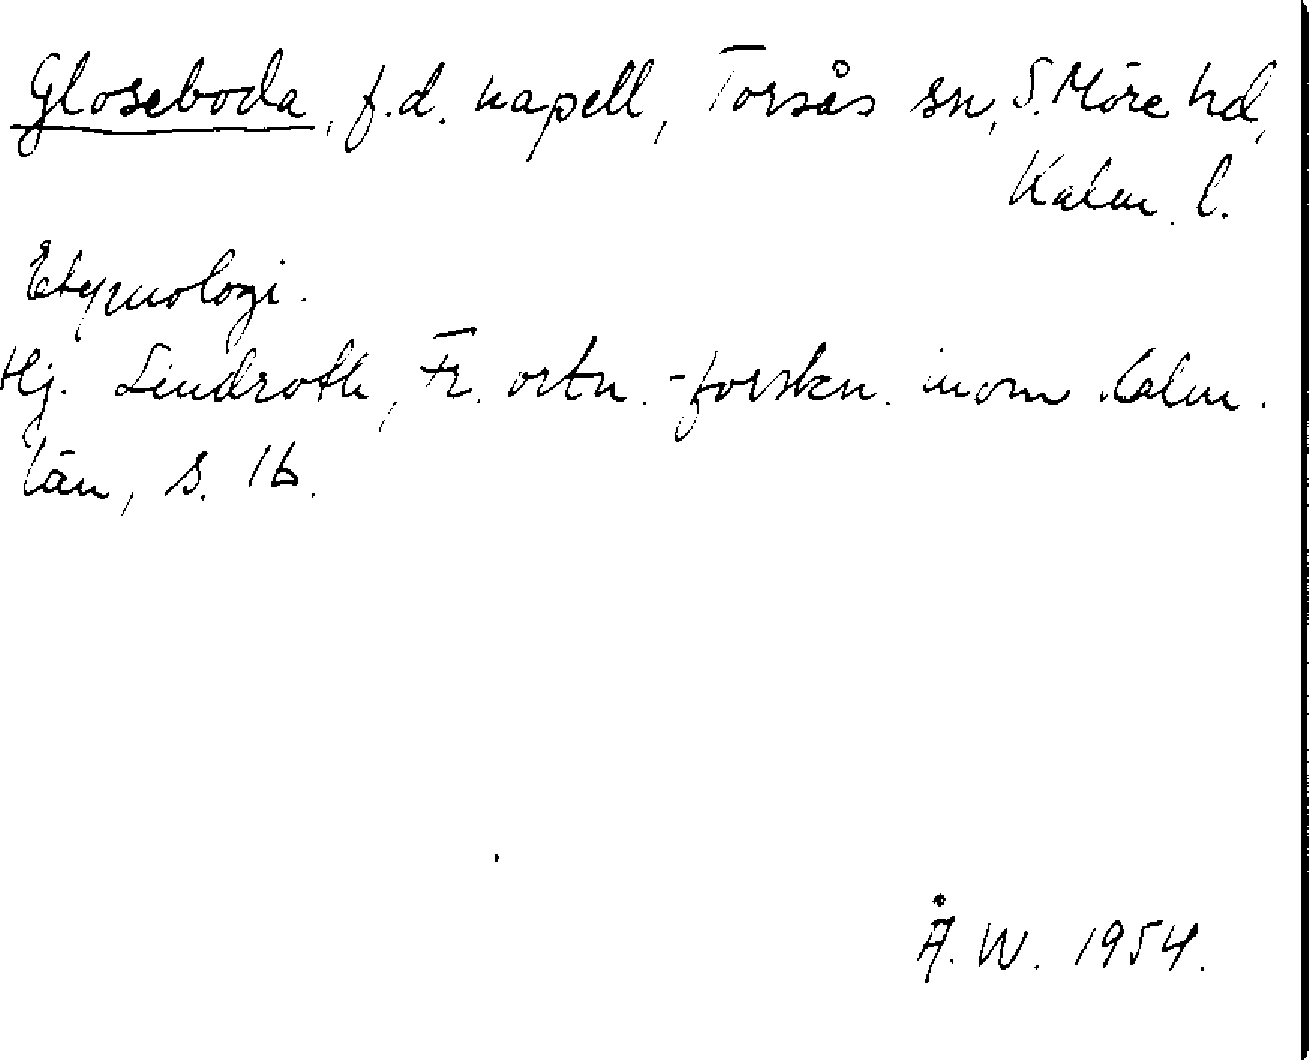 Gloseboda, f.d. kapell, Torsås sn, S. Möre hd,
Kalm. l.
Etymologi.
Hj. Lindroth, Fr. ortn.-forskn. inom Kalm.
län, s. 16.
Å. W. 1954.